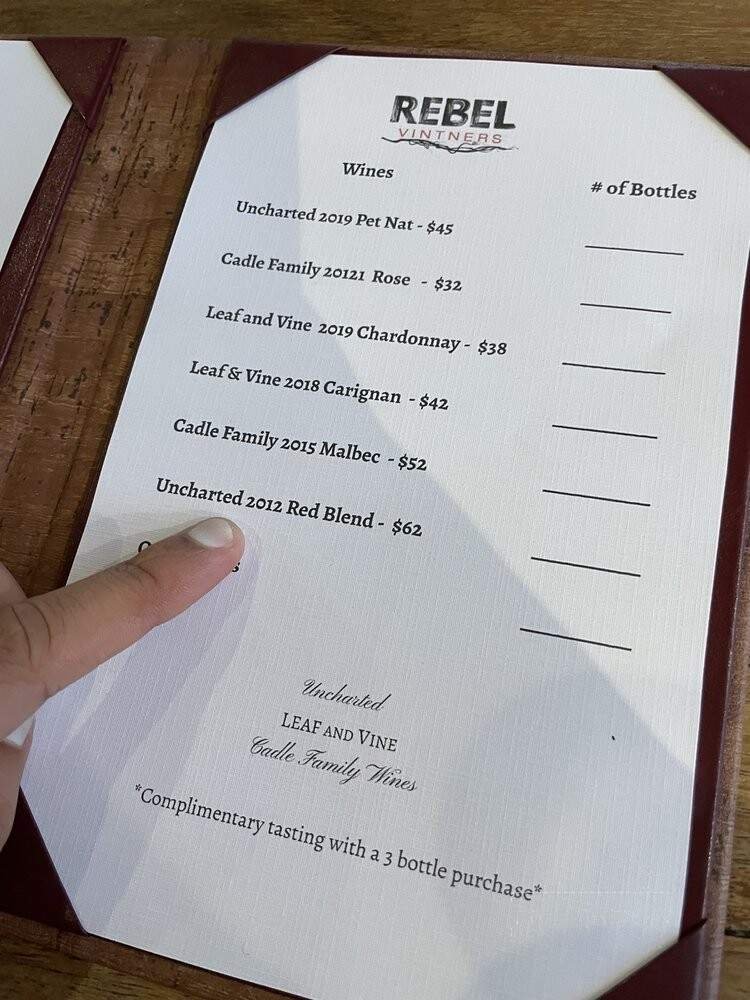 REBEL
VINTNERS
Wines
# of Bottles
Uncharted 2019 Pet Nat - $45
Cadle Family 20121 Rose - $32
Leaf and Vine 2019 Chardonnay - $38
Leaf & Vine 2018 Carignan - $42
Cadle Family 2015 Malbec - $52
Uncharted 2012 Red Blend - $62
Uncharted
LEAF AND VINE
Cadle Family Wines
*Complimentary tasting with a 3 bottle purchase*